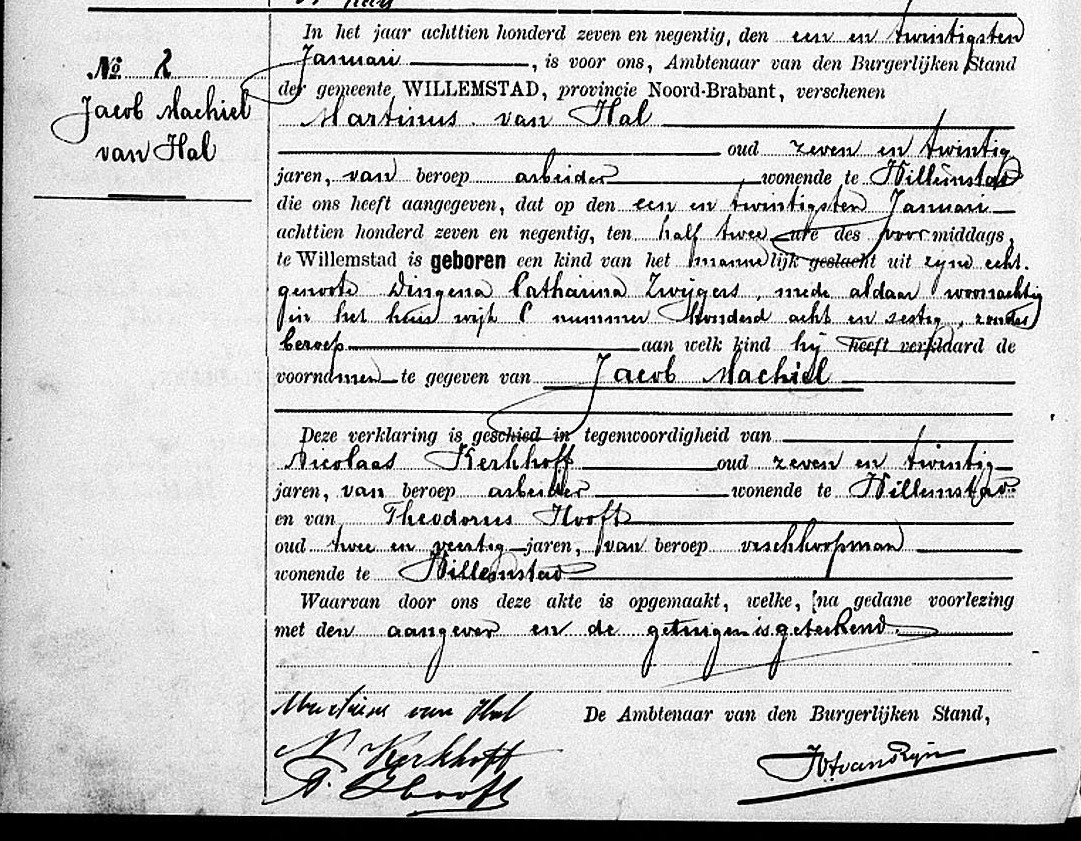 No 2
Jacob Machiel
van Hal
In het jaar achttien honderd zeven en negentig, den een en twintigsten
Januari, is voor ons, Ambtenaar van den Burgerlijken Stand
der gemeente WILLEMSTAD, provincie Noord-Brabant, verschenen
Martinus van Hal
oud zeven en twintig
jaren, van beroep arbeider wonende te Willemstad
die ons heeft aangegeven, dat op den een en twintigsten Januari
achttien honderd zeven en negentig, ten half twee ure des voormiddags,
te Willemstad is geboren een kind van het mannelijk geslacht uit zijne echt-
genoote Dingena Catharina Zwijgers, mede aldaar woonachtig
in het huis wijk C nummer honderd acht en zestig, zonder
beroep aan welk kind hij heeft verklaard de
voornamen te gegeven van Jacob Machiel
Deze verklaring is geschied in tegenwoordigheid van
Nicolaas Kerkhoff oud zeven en twintig
jaren, van beroep arbeider wonende te Willemstad
en van Theodorus Hooft
oud twee en veertig jaren, van beroep vischkoopman
wonende te Willemstad
Waarvan door ons deze akte is opgemaakt, welke, na gedane voorlezing
met den aangever en de getuigen is geteekend.
Martinus van Hal
De Ambtenaar van den Burgerlijken Stand,
N Kerkhoff
T. Hooft
van Rijn